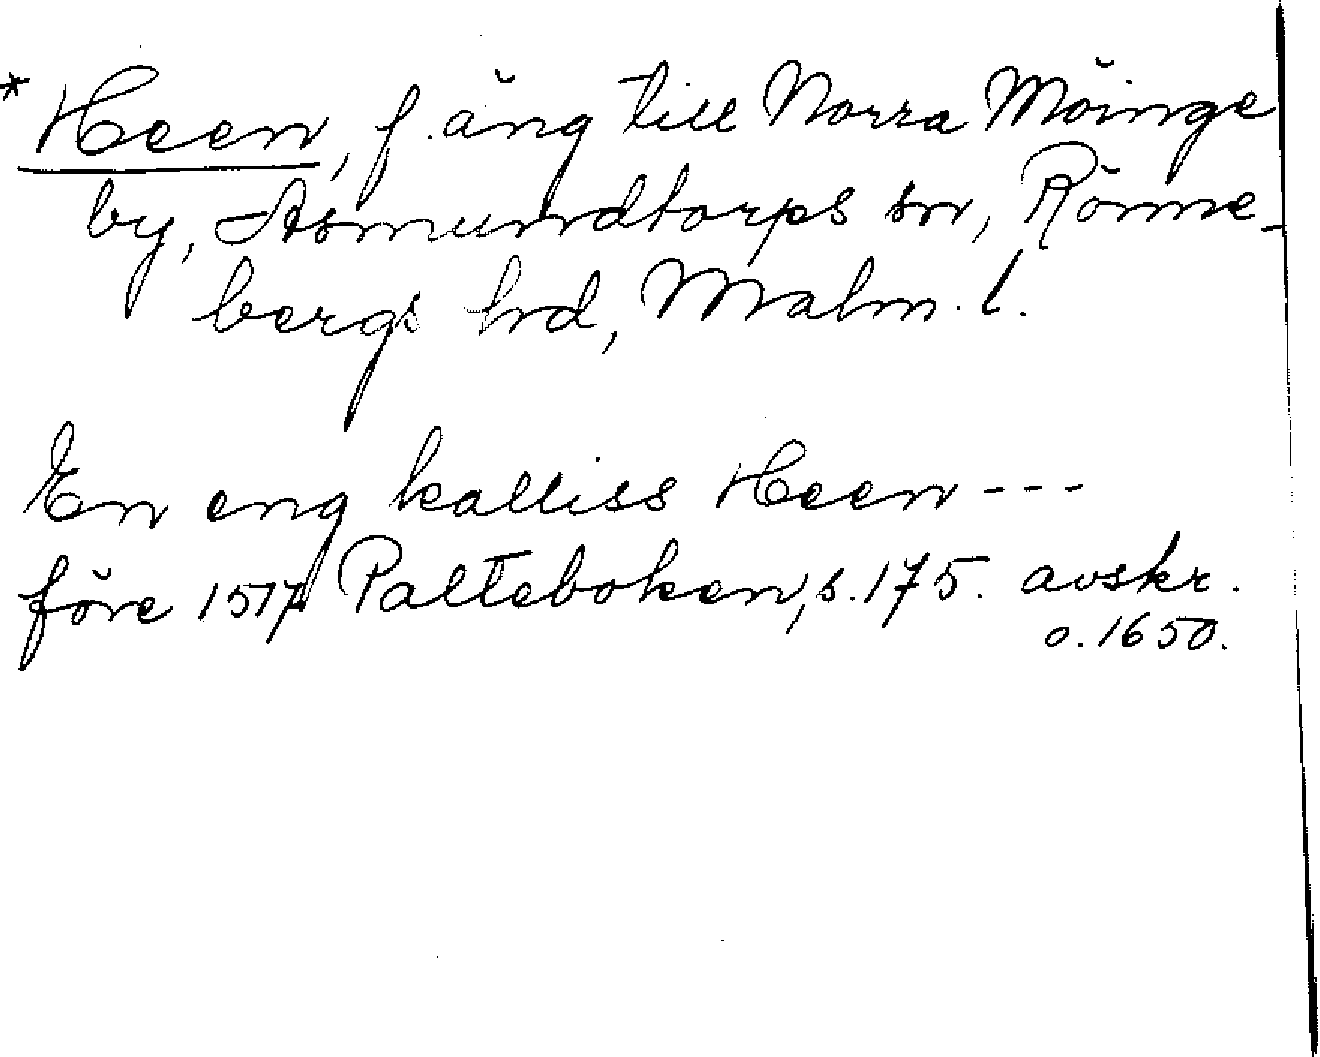 * Heen, f. äng till Norra Möinge
by, Asmundtorps sn, Rönne-
bergs hd, Malm. l.
En eng kalliss Heen ---
före 1517 Palteboken, s. 175. avskr.
o. 1650.